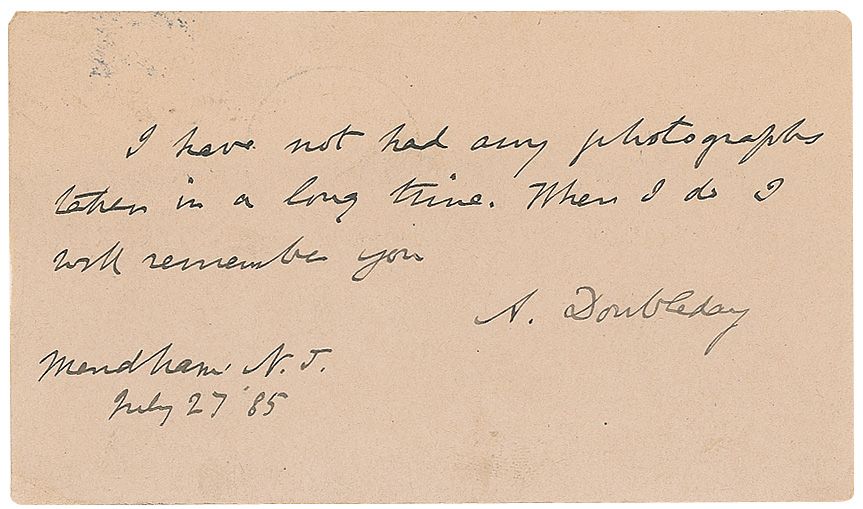 I have not had any photographs
taken in a long time. When I do I
will remember you
A. Doubleday
Mendham N. J.
July 27 '85